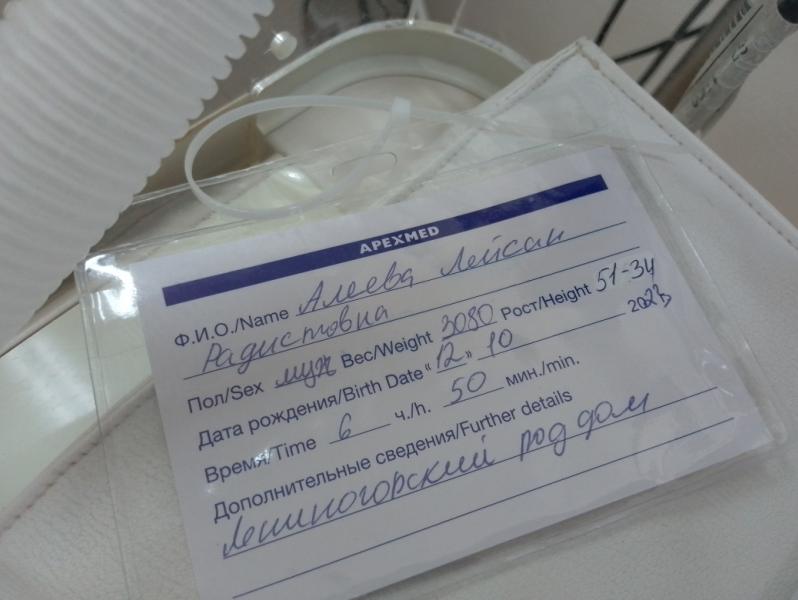 APEXMED
Ф.И.О./Name Алеева Лейсан
Радистовна
Пол/Sex муж Вес/Weight 3080 Рост/Height 51-34
Дата рождения/Birth Date "12" 10 2023
Время/Time 6 ч./h. 50 мин./min.
Дополнительные сведения/Further details
Лениногорский род дом